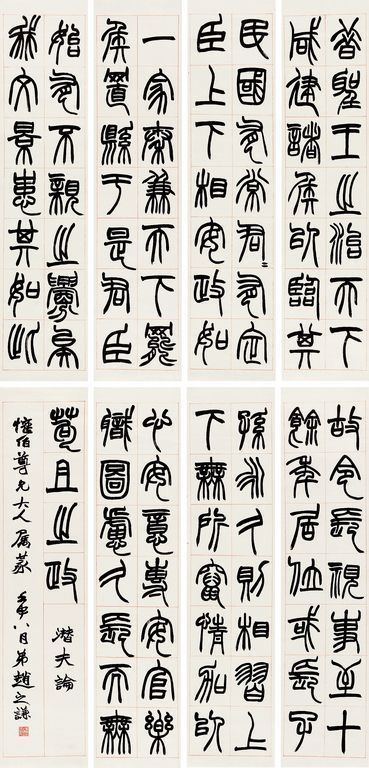 昔聖王之治天下
咸建諸侯以臨其
民國有常君=有定
臣上下相安政如
一家秦兼天下罷
侯置縣于是君臣
始有不親之釁矣
我文景患其如此
故令長視事至十
餘年居位或長子
孫永久則相習上
下無所竄情加以
心安意專安官樂
職圖慮久長而無
苟且之政 潛夫論
懽伯尊兄大人屬篆 壬申八月弟趙之謙